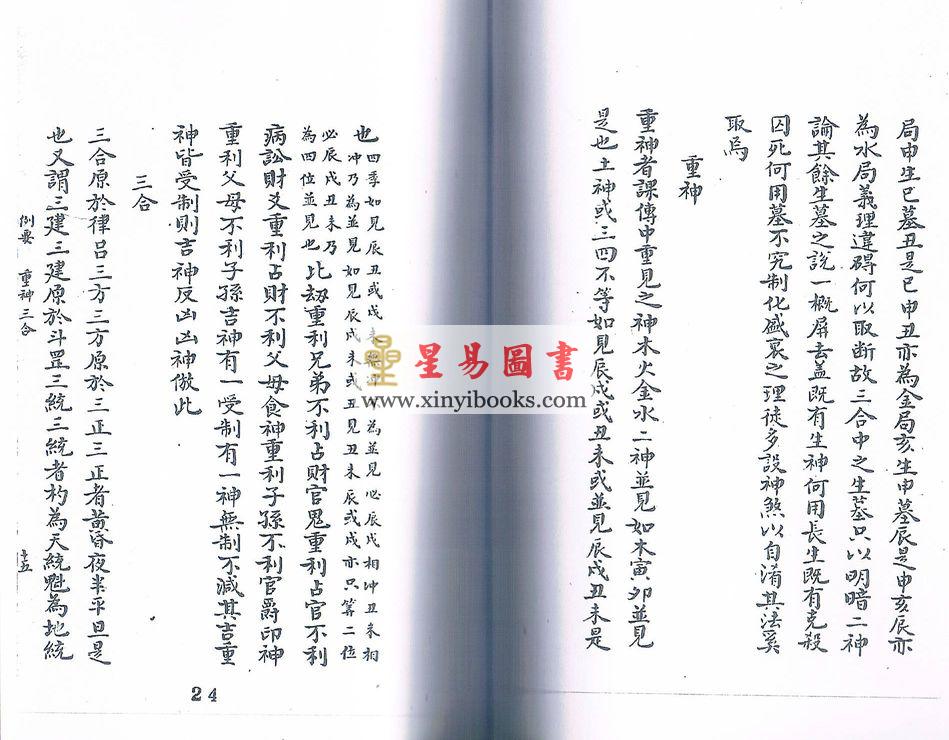 局申生巳墓丑是巳申丑亦為金局亥生申墓辰是申亥辰亦
為水局義理違碍何以取断故三合中之生墓只以明暗二神
論其餘生墓之説一概屏去盖既有生神何用長生既有克殺
囚死何用墓不究制化盛衰之理徒多設神煞以自淆其法奚
取焉
重神
重神者課傳中重見之神木火金水二神並見如木寅夘並見
是也土神或三四不等如見辰戌或丑未或並見辰戌丑未是
也四季如見辰丑或戌未為並見必辰戌相冲丑未相
冲乃為並見如見辰戌未或丑見丑未辰或戌亦只筭二位
必辰戌丑未乃
為四位並見也比刼重利兄弟不利占財官鬼重利占官不利
病訟財爻重利占財不利父母食神重利子孫不利官爵印神
重利父母不利子孫吉神有一受制有一神無制不減其吉重
神皆受制則吉神反凶凶神倣此
三合
三合原於律吕三方三方原於三正三正者黄昏夜半平旦是
也又謂三建三建原於斗罡三統三統者杓為天統魁為地統
例要 重神 三合
24
星易圖書
www.xinyibooks.com